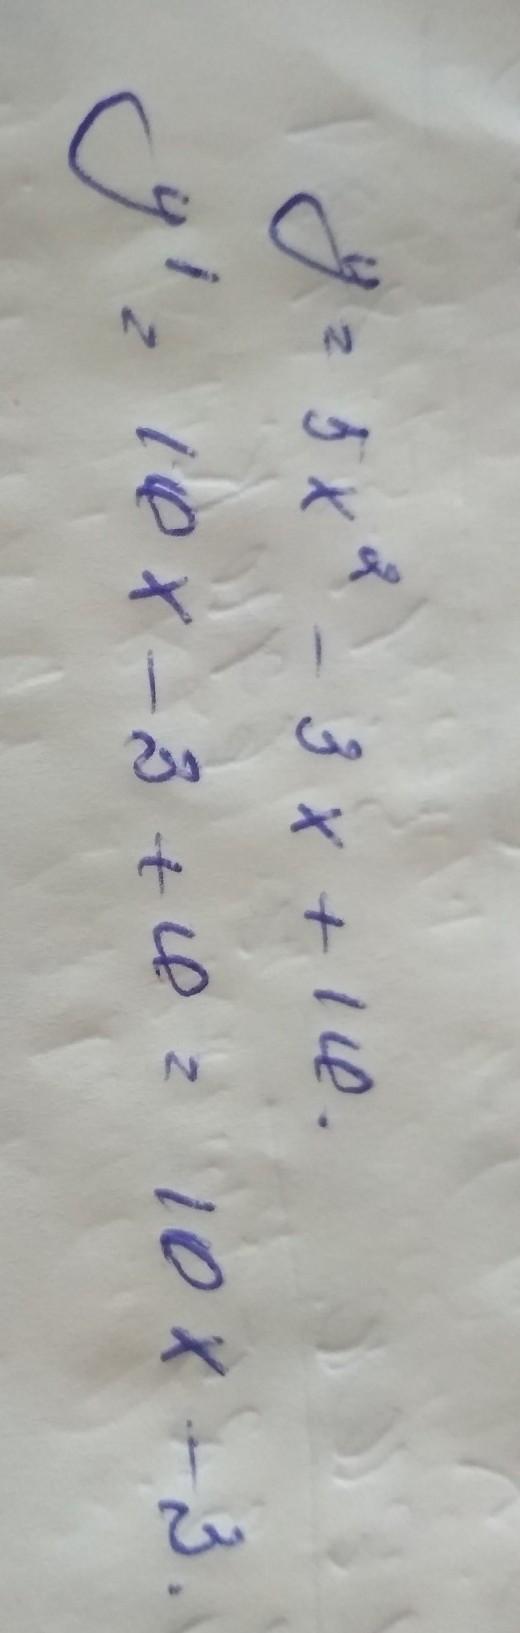 y = 5x² - 3x + 10.
y' = 10x - 3 + 0 = 10x - 3.